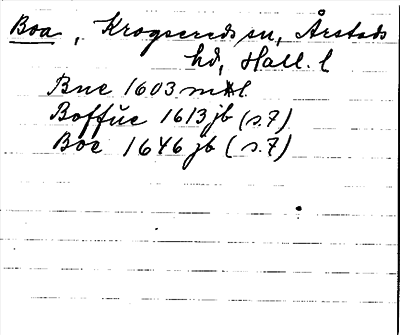 Boa, Krogsereds sn, Årstads
hd, Hall. l
Bne 1603 mtl
Boffŭe 1613 jb (s. 7)
Boe 1646 jb (s. 7)